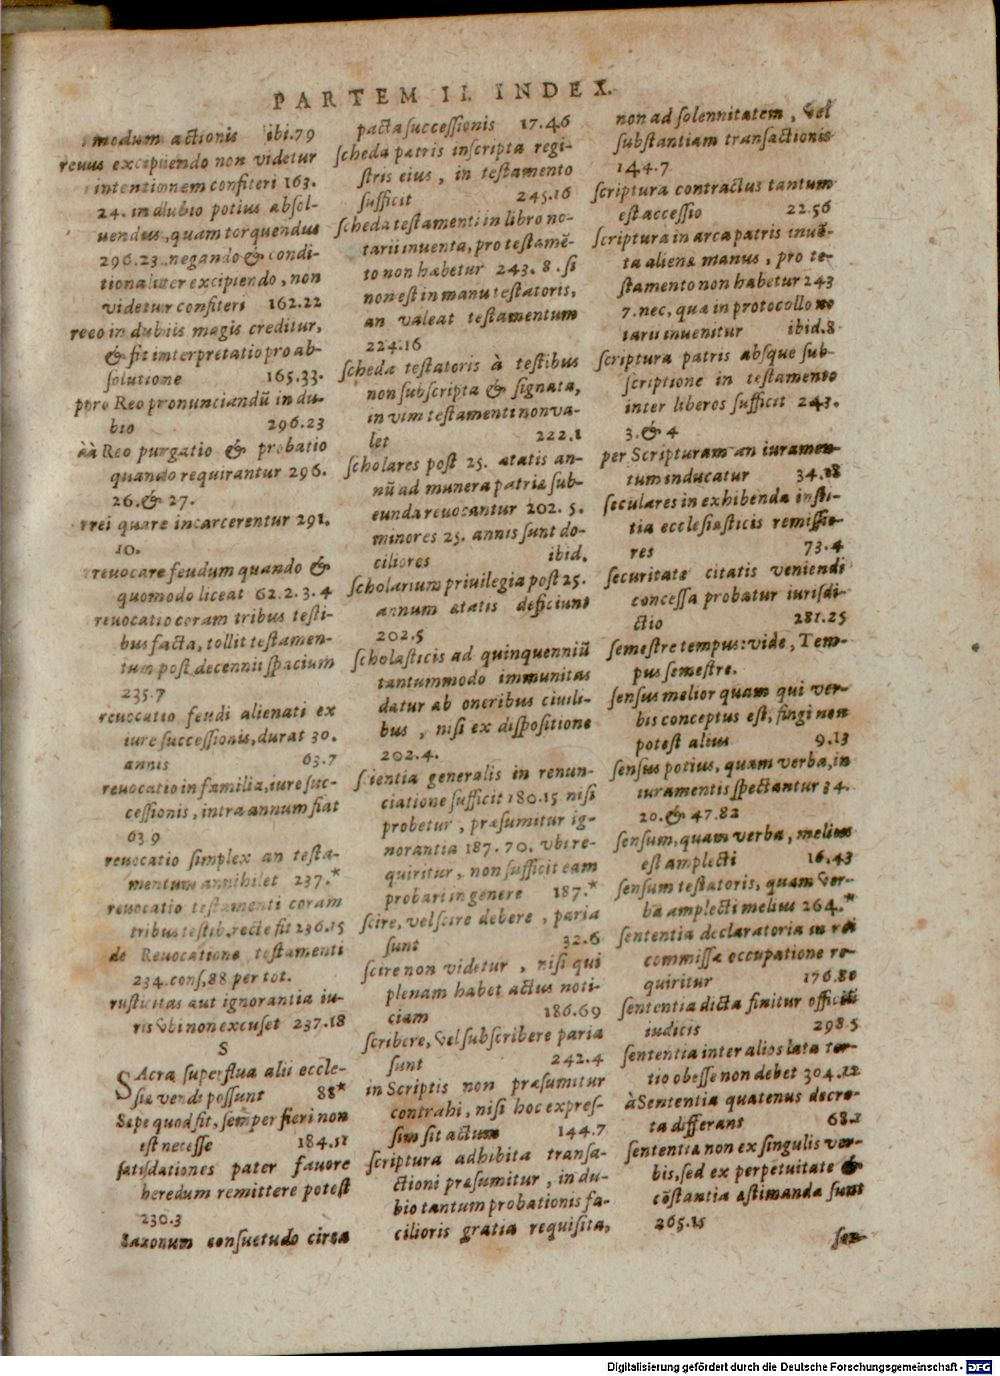 PARTEM II. INDEX.
modum actionis ibi.79
reuus excipiendo non videtur
intentionem confiteri 163.
24. in dubio potius absol-
uendus, quam torquendus
296.23. negando & condi-
tionaliter excipiendo, non
videtur confiteri 162.22
reeo in dubiis magis creditur,
& fit interpretatio pro ab-
solutione 165.33.
ppro Reo pronunciandũ in du-
bio 296.23
àà Reo purgatio & probatio
quando requirantur 296.
26. & 27.
rrei quare incarcerentur 291.
10.
reuocare feudum quando &
quomodo liceat 62.2.3.4
reuocatio coram tribus testi-
bus facta, tollit testamen-
tum post decennii spacium
235.7
reuocatio feudi alienati ex
iure successionis, durat 30.
annis 63.7
reuocatio in familia, iure suc-
cessionis, intra annum fiat
63.9
reuocatio simplex an testa-
mentum annihilet 237.*
reuocatio testamenti coram
tribus testib. recte fit 236.15
de Reuocatione testamenti
234. cons, 88 per tot.
rusticitas aut ignorantia iu-
ris vbi non excuset 237.18
S
SAcra superflua alii eccle-
siæ vendi possunt 88*
Sæpe quod fit, semper fieri non
est necesse 184.11
satisdationes pater fauore
heredum remittere potest
230.3
Saxonum consuetudo circa
pacta successionis 17.46
scheda patris inscripta regi-
stris eius, in testamento
sufficit 245.16
scheda testamenti in libro no-
tarii inuenta, pro testamẽ-
to non habetur 243. 8. si
non est in manu testatoris,
an valeat testamentum
224.16
scheda testatoris à testibus
non subscripta & signata,
in vim testamenti non va-
let 222.1
scholares post 25. ætatis an-
nũ ad munera patriæ sub-
eunda reuocantur 202. 5.
minores 25. annis sunt do-
ciliores ibid.
scholarium priuilegia post 25.
annum ætatis deficiunt
202.5
scholasticis ad quinquenniũ
tantummodo immunitas
datur ab oneribus ciuili-
bus, nisi ex dispositione
202.4.
scientia generalis in renun-
ciatione sufficit 180.15 nisi
probetur, præsumitur ig-
norantia 187. 70. vbi re-
quiritur, non sufficit eam
probari in genere 187.*
scire, vel scire debere, paria
sunt 32.6
scire non videtur, nisi qui
plenam habet actus noti-
ciam 186.69
scribere, vel subscribere paria
sunt 242.4
in Scriptis non præsumitur
contrahi, nisi hoc expres-
sim sit actum 144.7
scriptura adhibita transa-
ctioni præsumitur, in du-
bio tantum probationis fa-
cilioris gratia requisita,
non ad solennitatem, vel
substantiam transactionis
144.7
scriptura contractus tantum
est accessio 22.56
scriptura in arca patris inuẽ-
ta alienæ manus, pro te-
stamento non habetur 243
7. nec, quæ in protocollo no
tarii inuenitur ibid.8
scriptura patris absque sub-
scriptione in testamento
inter liberos sufficit 243.
3. & 4
per Scripturam an iuramen-
tum inducatur 34.18
seculares in exhibenda insti-
tia ecclesiasticis remissio-
res 73.4
securitate citatis veniendi
concessa probatur iurisdi-
ctio 281.25
semestre tempus: vide, Tem-
pus semestre.
sensus melior quam qui ver-
bis conceptus est, fingi non
potest alius 9.13
sensus potius, quam verba, in
iuramentis spectantur 34.
20. & 47.82
sensum, quam verba, melius
est amplecti 16.43
sensum testatoris, quam ver-
ba amplecti melius 264.*
sententia declaratoria in rei
commissæ occupatione re-
quiritur 176.80
sententia dicta finitur officiũ
iudicis 298.5
sententia inter alios lata ter-
tio obesse non debet 304.12
à Sententia quatenus decre-
ta differant 68.2
sententia non ex singulis ver-
bis, sed ex perpetuitate &
cõstantia æstimanda sunt
265.15
sen-
Digitalisierung gefördert durch die Deutsche Forschungsgemeinschaft - DFG